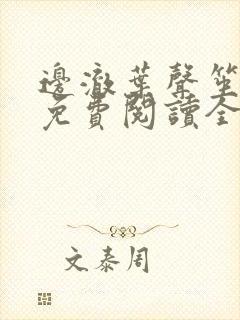 邊澈葉聲笙
免費閱讀全
文泰周